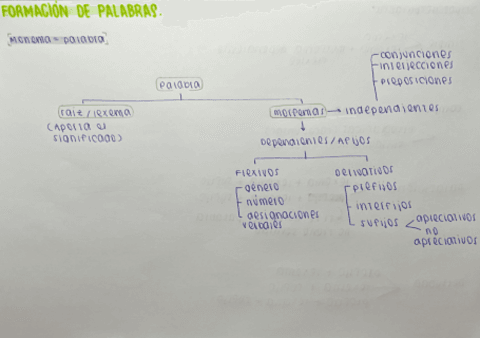 FORMACIÓN DE PALABRAS.
[Monema = palabra]
conjunciones
intersecciones
preposiciones
palabra
raíz / lexema
morfemas → independientes
(Aporta el
significado)
Dependientes / Afijos
Flexivos
Derivativos
género
prefijos
número
interfijos
designaciones
verbales
sufijos
apreciativos
no
apreciativos